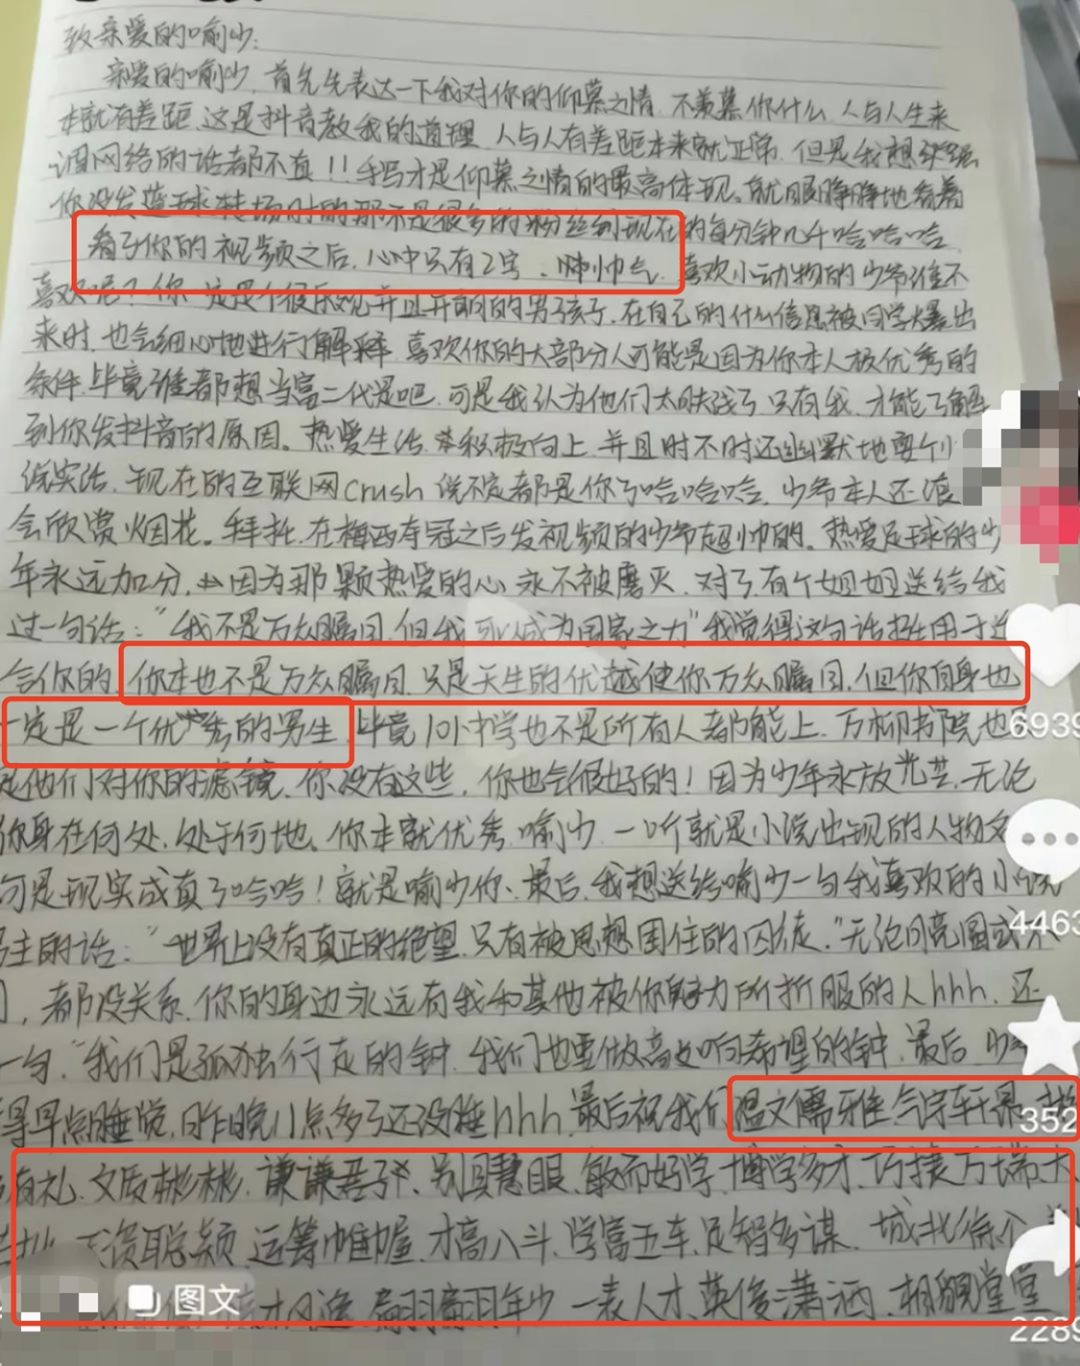 致亲爱的喻少:
亲爱的喻少,首先先表达一下我对你的仰慕之情,不羡慕你什么,人与人生来
本就有差距,这是抖音教我的道理,人与人有差距本来就正常,但是我想
网络的话都不真!!手写才是仰慕之情的最高体现。就眼睁睁地看着
你没发篮球转场时的那不是很多的粉丝到现在的每分钟几千哈哈哈,
看了你的视频之后,心中只有2字、帅帅气,喜欢小动物的少爷谁不
喜欢呢?你一定是个很乐观并且开朗的男孩子,在自己的什么信息被同学曝出
来时,也会细心地进行解释,喜欢你的大部分人可能是因为你本人极优秀的
条件,毕竟谁都想当富二代是吧,可是我认为他们太肤浅了,只有我,才能了解
到你发抖音的原因。热爱生活,积极向上,并且时不时还幽默地耍个
说实话,现在的互联网crush说不定都是你了哈哈哈,少爷本人还浪
会欣赏烟花。拜托,在梅西夺冠之后发视频的少爷超帅的。热爱足球的少
年永远加分,因为那颗热爱的心永不被磨灭,对了有个姐姐送给我
过一句话:“我不是万众瞩目,但我可以成为国家之力”我觉得这句话挺用于
合你的,你本也不是万众瞩目,只是天生的优越使你万众瞩目,但你自身也
一定是一个优秀的男生,毕竟101中学也不是所有人都能上,万柳书院也
是他们对你的滤镜,你没有这些,你也会很好的!因为少年永放光芒,无论
你身在何处,处于何地,你本就优秀,喻少,一听就是小说出现的人物
可是现实成真了哈哈!就是喻少你、最后,我想送给喻少一句我喜欢的小说
男主的话:“世界上没有真正的绝望,只有被思想困住的囚徒,”无论月亮圆或不
,都没关系,你的身边永远有我和其他被你魅力所折服的人hhh,还
一句“我们是孤独行走的钟,我们也要做高处响希望的钟,最后,少
得早点睡觉,昨晚11点多了还没睡hhh,最后祝我们温文儒雅,气宇轩昂
有礼,文质彬彬,谦谦君子,别具慧眼,敏而好学,博学多才,巧捷万端,
天资聪颖,运筹帷幄,才高八斗,学富五车,足智多谋,城北徐公
翩翩年少,一表人才,英俊潇洒,相貌堂堂
图文
6939
4463
352
2289